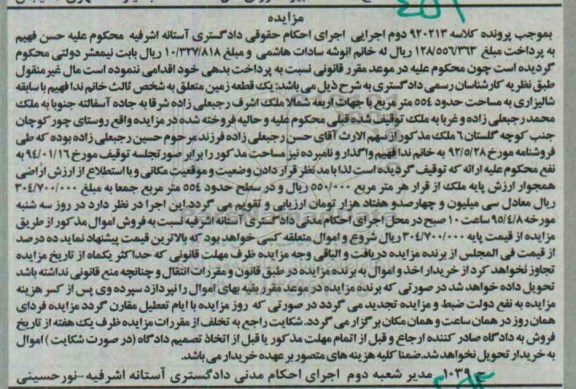 مزایده
بموجب پرونده کلاسه ۹۲۰۲۱۳ دوم اجرایی اجرای احکام حقوقی دادگستری آستانه اشرفیه محکوم علیه حسن فهیم
به پرداخت مبلغ ۱۲۸/۵۵۶/۳۶۳ ریال له خانم انوشه سادات هاشمی و مبلغ ۱۰/۳۲۷/۸۱۸ ریال بابت نیمعشر دولتی محکوم
گردیده است چون محکوم علیه در موعد مقرر قانونی نسبت به پرداخت بدهی خود اقدامی ننموده است مال غیر منقول
طبق نظریه کارشناسان رسمی دادگستری به شرح ذیل می باشد: یک قطعه زمین متعلق به شخص ثالث خانم ندا فهیم با سابقه
شالیزاری به مساحت حدود ۵۵۴ متر مربع با جهات اربعه شمالا ملک اشرف رجبعلی زاده شرقا به جاده آسفالته جنوبا به ملک
محمد رجبعلی زاده و غربا به ملک توقیف شده قبلی محکوم علیه و حالیه فروخته شده در مزایده واقع روستای چور کوچان
جنب کوچه گلستان ۶ ملک مذکور از سهم الارث آقای حسن رجبعلی زاده فرزند مرحوم حسین رجبعلی زاده بوده که طی
فروشنامه مورخ ۹۲/۵/۲۸ به خانم ندا فهیم واگذار و نامبرده نیز مساحت مذکور را برابر صورتجلسه توقیف مورخ ۹۴/۰۱/۱۶ به
نفع محکوم علیه ارائه که توقیف گردیده است لذا با مد نظر قرار دادن وضعیت و موقعیت مکانی و با استطلاع از ارزش اراضی
همجوار ارزش پایه ملک از قرار هر متر مربع ۵۵۰/۰۰۰ ریال و در سطح حدود ۵۵۴ متر مربع جمعا به مبلغ ۳۰۴/۷۰۰/۰۰۰
ریال معادل سی میلیون و چهارصد و هفتاد هزار تومان ارزیابی و تقویم می گردد. این اجرا در نظر دارد در روز سه شنبه
مورخه ۹۵/۴/۸ ساعت ۱۰ صبح در محل اجرای احکام مدنی دادگستری آستانه اشرفیه نسبت به فروش اموال مذکور از طریق
مزایده از قیمت پایه ۳۰۴/۷۰۰/۰۰۰ ریال شروع و اموال متعلقه کسی خواهد بود که بالاترین قیمت پیشنهاد نماید ده درصد
از قیمت فی المجلس از برنده مزایده دریافت و الباقی وجه مزایده ظرف مهلت قانونی که حداکثر یکماه از تاریخ مزایده
تجاوز نخواهد کرد از خریدار اخذ و اموال به برنده مزایده در طبق قانون و مقررات انتقال و چنانچه منع قانونی نداشته باشد
تحویل داده خواهد شد در صورتی که برنده مزایده در موعد مقرر بقیه بهای اموال را نپردازد سپرده وی پس از کسر هزینه
مزایده به نفع دولت ضبط و مزایده تجدید می گردد در صورتی که روز مزایده با ایام تعطیل مقارن گردد مزایده فردای
همان روز در همان ساعت و همان مکان برگزار می گردد. شکایت راجع به تخلف از مقررات مزایده ظرف یک هفته از تاریخ
فروش به دادگاه صادر کننده ارجاع و قبل از اتمام مهلت مذکور یا قبل از اتخاذ تصمیم دادگاه (در صورت شکایت ) اموال
به خریدار تحویل نخواهد شد. ضمنا کلیه هزینه های متصور بر عهده خریدار می باشد.
۱۰۳۹ مدیر شعبه دوم اجرای احکام مدنی دادگستری آستانه اشرفیه-نورحسینی